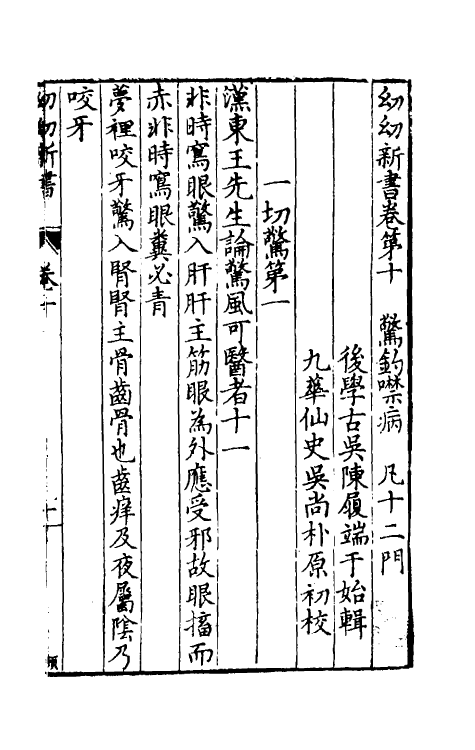 幼幼新書卷第十　驚釣噤病　凡十二門
後學古吳陳履端于始輯
九華仙史吳尚朴原初校
一切驚第一
漢東王先生論驚風可醫者十一
非時寫眼驚入肝肝主筋眼為外應受邪故眼搐而
赤非時寫眼糞必青
夢裡咬牙驚入腎腎主骨齒骨也齒痒及夜屬陰乃
咬牙
幼幼新書　卷十